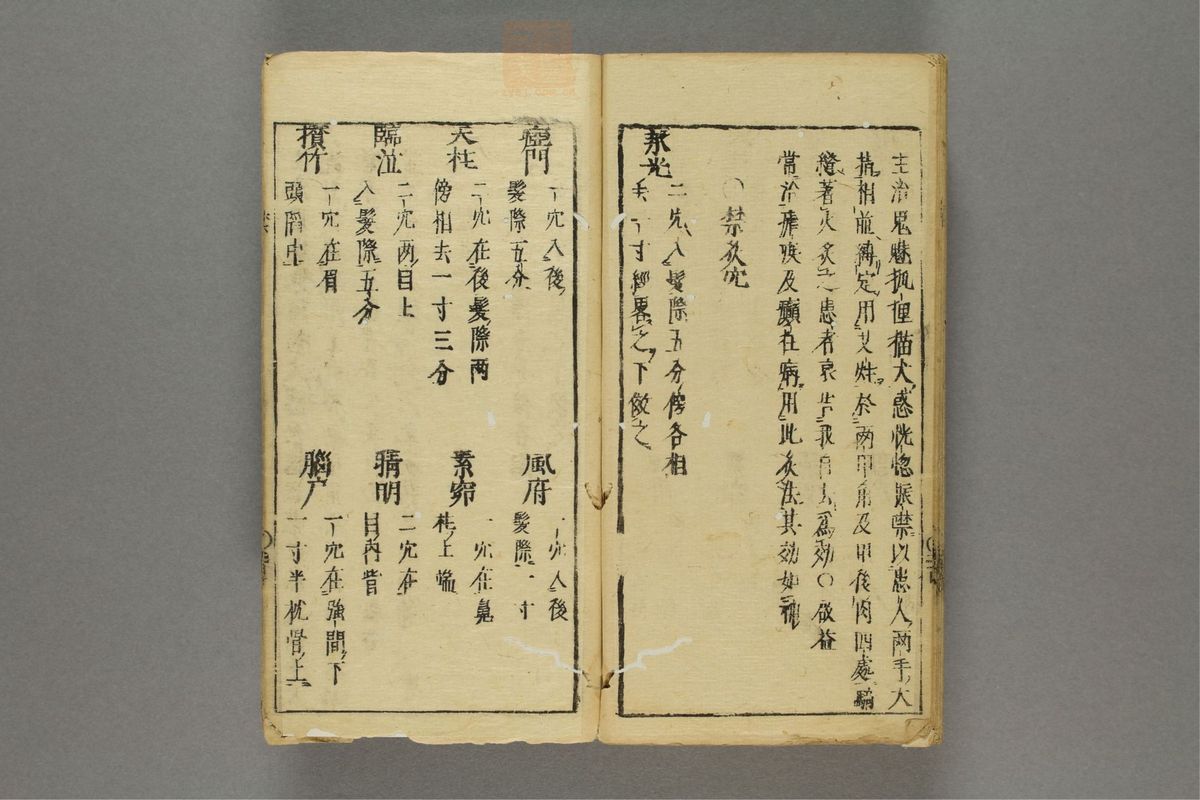 主治鬼魅狐狸猫犬惑恍惚振禁以患人両手大
指相並縛定用艾炷於両甲角及甲後肉四處騎
縫著火灸之患者哀告我自去為効〇啟益
常治痎及癲狂病用此灸法其効如神
〇禁灸穴
承光
二穴入髮際五分傍各相
去一寸經畧之下倣之
瘂門
一穴入後
髮際五分
風府
一穴入後
髮際一寸
天柱
二穴在後髮際両
傍相去一寸三分
素窌
一穴在鼻
柱上端
臨泣
二穴両目上
入髮際五分
睛明
二穴在
目内眥
攅竹
一穴在眉
頭陷中
腦户
一穴在強間下
一寸半枕骨上